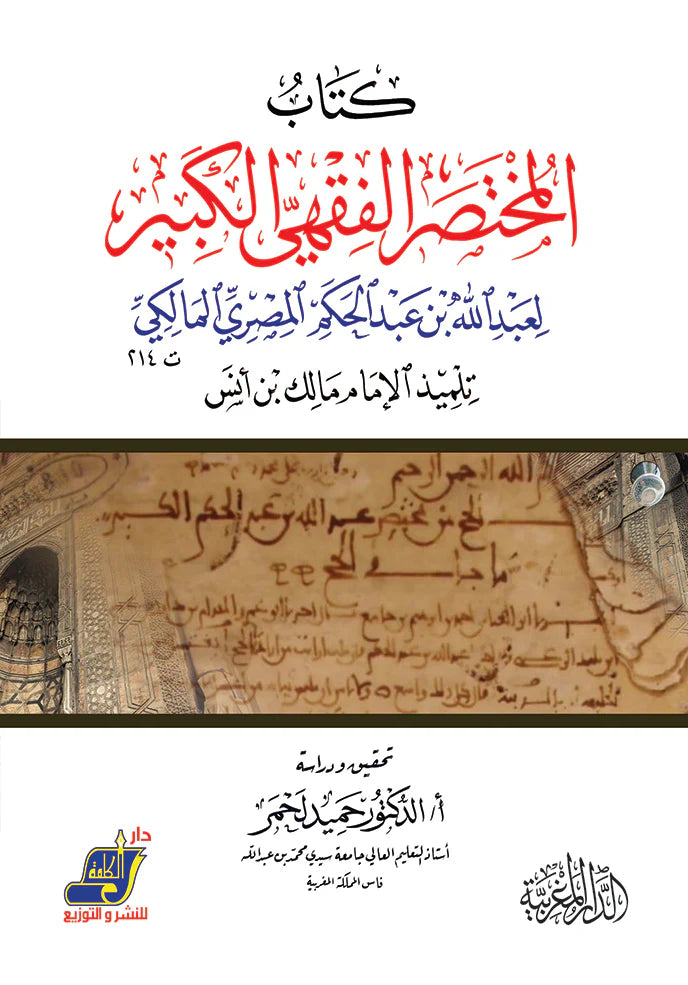 كِتَابُ
المُخْتَصَرِ الفِقْهِيِّ الكَبِيرِ
لِعَبْدِ اللهِ بْنِ عَبْدِ الحَكَمِ المِصْرِيِّ المَالِكِيِّ
ت ٢١٤
تِلْمِيذِ الإِمَامِ مَالِك بْنِ أَنَسَ
الله الرحمن الرحيم
الحج من مختصر عبد الله بن عبد الحكم الكبير
ما جاء في الحج
تحقيق ودراسة
أ/ الدُّكتُور حَمِيد لَحْمَر
أستاذ التعليم العالي جامعة سيدي محمد بن عبد الله
فاس المملكة المغربية
دار
الكلمة
للنشر و التوزيع
الدَّار المَغْرِبِيَّة